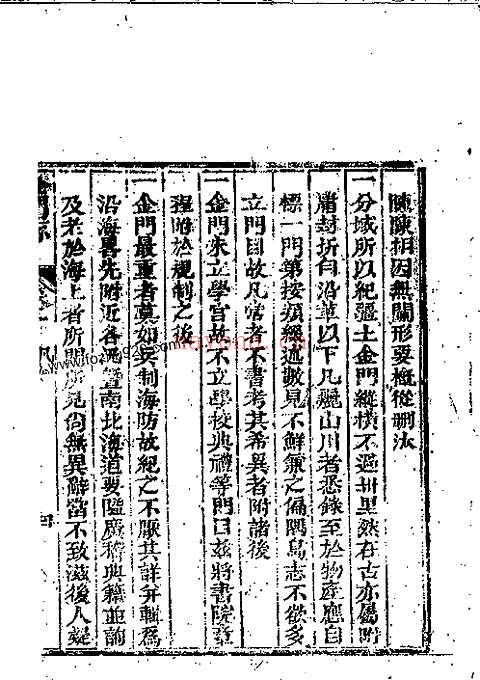 陳陳相因無關形要概從刪汰
一分域所以紀疆土金門縱橫不過卅里然在古亦屬附
庸封折自沿革以下凡屬山川者悉錄至於物產應自
標一門第按類經述數見不鮮兼之偏隅島志不欲多
立門目故凡常者不書考其希異者附諸後
一金門未立學官故不立學校典禮等門目茲將書院章
程附於規制之後
一金門最重者莫如兵制海防故紀之不厭其詳弁輯為
沿海畧先附近各澳暨南北海道要隘廣稽典籍並詢
及老於海上者所聞所見尚無異辭當不致滋後人疑
金門志
四
nayona.cn